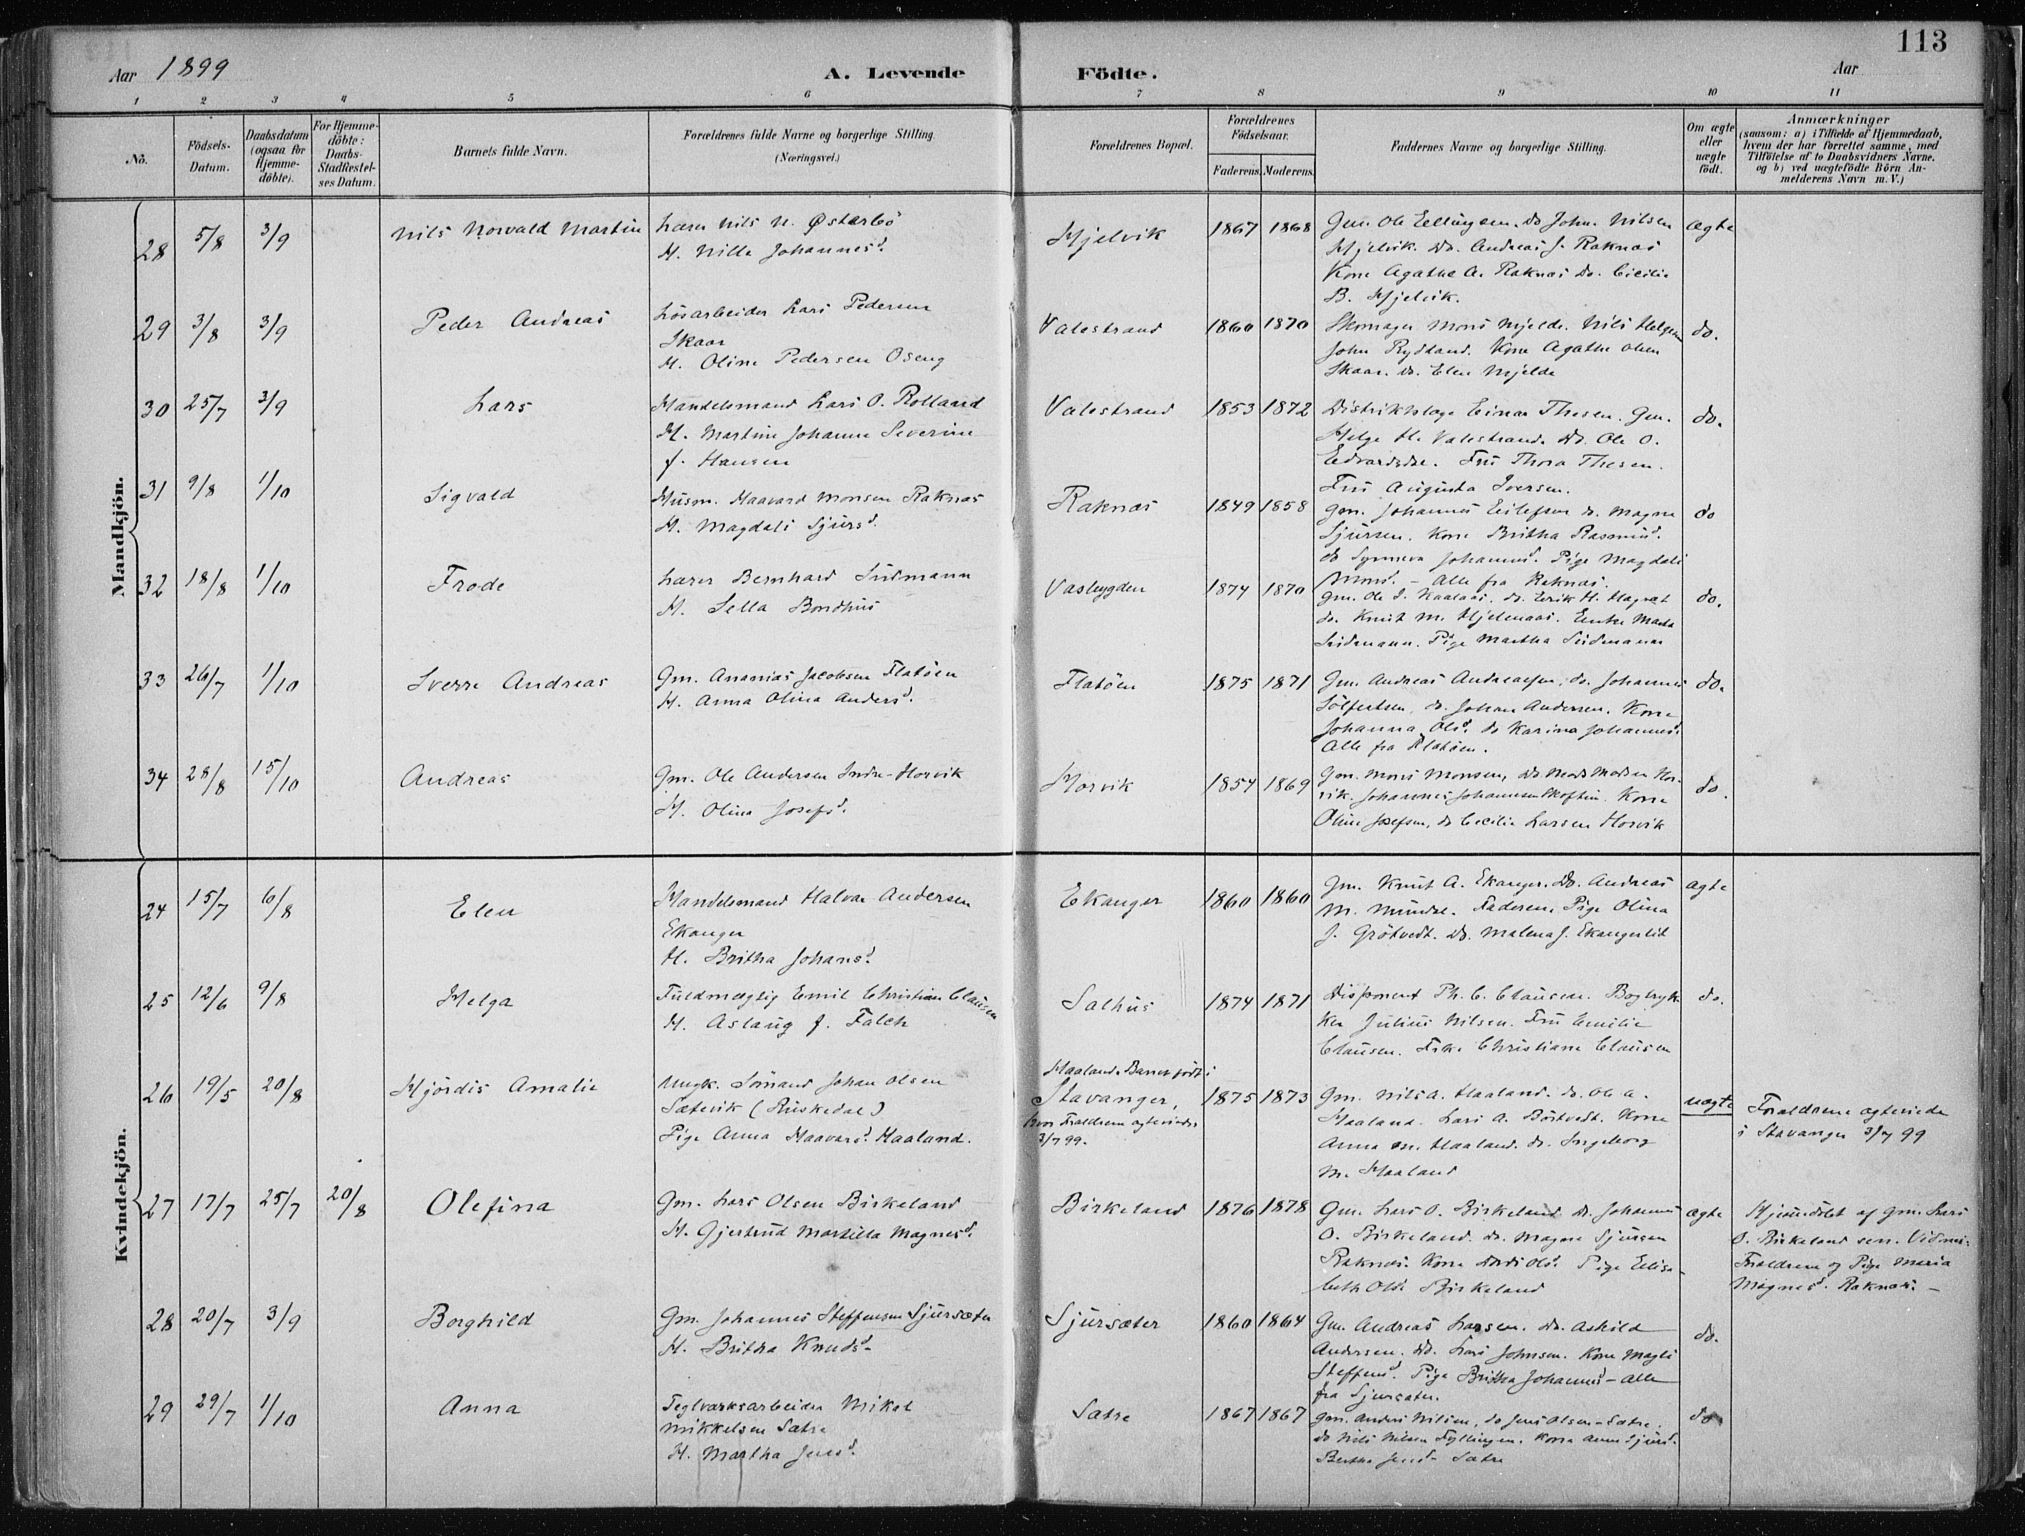 113
Aar 1899
A. Levende Födte.
Aar
1 2 3 4 5 6 7 8 9 10 11
No.
Födsels-Datum.
Daabsdatum (ogsaa for Hjemmedöbte).
For Hjemmedöbte: Daabs-Stadfæstelses Datum.
Barnets fulde Navn.
Forældrenes fulde Navne og borgerlige Stilling (Næringsvei.)
Forældrenes Bopæl.
Forældrenes Födselsaar.
Faderens. Moderens.
Faddernes Navne og borgerlige Stilling.
Om ægte eller uægte födt.
Anmærkninger
(saasom: a) i Tilfælde af Hjemmedaab,
hvem der har forrettet samme, med
Tilföielse af to Daabsvidners Navne,
og b) ved uægtefödte Börn Anmelderens Navn m. V.)
Mandkjön.
28 5/8 3/9 Nils Norvald Martin Lærer Nils N. Østerbö Hjelvik 1867 1868 Gm. Ole Ellingsen, do John Nilsen ægte
H. Nille Johannesd. Hjelvik. do. Andreas J. Raknæs
Kone Agathe A. Raknæs do. Cicilie
B. Hjelvik.
29 3/8 3/9 Peder Andreas Lösarbeider Lars Pedersen Valestrand 1860 1870 Skomager Mons Mjelde. Nils Helgesen do.
Skaar John Rydland. Kone Agathe Olsen
H. Oline Pedersen Oseng Skaar. do. Elen Mjelde
30 25/7 3/9 Lars Handelsmand Lars O. Rolland Valestrand 1853 1872 Distriktslæge Einar Thesen. Gm. do.
H. Martine Johanne Severine Helge H. Valestrand. do. Ole O.
f. Hansen Edvardsda. Fru Thora Thesen.
Fru Augusta Iversen.
31 9/8 1/10 Sigvald Husm. Haavard Monsen Raknæs Raknæs 1849 1858 Gm. Johannes Eilefsen do. Magne do
H. Magdeli Sjursd. Sjursen. Kone Britha Rasmusd.
do Synneva Johannesd. Pige Magdeli
Monsd. - Alle fra Raknæs.
32 18/8 1/10 Frode Lærer Bernhard Sudmann Vasbygden 1874 1870 Gm. Ole J. do. Erik H. do.
H. Sella Bondhus do. Knut M. Hjelmaas. Enke Marta
Sudmann. Pige Martha Sudmann
33 26/7 1/10 Sverre Andreas Gm. Ananias Jacobsen Flatöen Flatöen 1875 1871 Gm. Andreas Andreassen, do. Johannes do.
H. Anna Olina Andersd. Sölfestsen, do. Johan Andersen. Kone
Johanna Olsd. do Karina Johannesd.
Alle fra Flatöen.
34 28/8 15/10 Andreas Gm. Ole Andersen Indre-Horvik Horvik 1854 1869 Gm. Mons Monsen, do Mads Madsen Hor- do.
H. Olina Josefsd. vik. Johannes Johannesen Kone
Oline Josefsen, do Cecilie Larsen Horvik
Kvindekjön.
24 15/7 6/8 Elen Handelsmand Halvar Andersen Ekanger 1860 1860 Gm. Knut A. Ekanger. do. Andreas ægte
Ekanger M. Mundal. Faderen, Pige Olina
H. Britha Johansd. J. Grötvedt. do. Malena J. Ekangerlid
25 12/6 9/8 Helga Fuldmægtig Emil Christian Clausen Salhus 1874 1871 Disponent Th. C. Clausen. Bogtryk- do.
H. Aslaug f. Falch ker Julius Nilsen. Fru Emilie
Clausen. Frk. Christiane Clausen
26 19/5 20/8 Hjördis Amalie Ungk. Sömand Johan Olsen Haaland. Barnet født i 1875 1873 Gm. Nils A. Haaland. do. Ole A. uægte Forældrene ægteviede
Sætevik (Ruskedal) Stavanger, Haaland. Lars A. Börtvedt. Kone i Stavanger 3/7 99
Pige Anna Haavardsd. Haaland. hvor Forældrene ægteviedes Anna M. Haaland. do. Ingeborg
3/7 99. M. Haaland
27 17/7 25/7 20/8 Olefina Gm. Lars Olsen Birkeland Birkeland 1876 1878 Gm. Lars O. Birkeland do. Johannes ægte Hjemmedöbt af Gm. Lars
H. Gjertrud Martilla Magnesd. O. Birkeland. do. Magne Sjursen O. Birkeland sen. Vidner:
Raknæs. Kone Olsd. Pige Elisa- Forældrene og Pige Maria
beth Olsd. Birkeland Magnesd. Raknæs. -
28 20/7 3/9 Borghild Gm. Johannes Steffensen Sjursæter Sjursæter 1860 1864 Gm. Andreas Larsen. do. Askild do.
H. Britha Knudsd. Andersen. do. Lars Johnsen. Kone Magli
Steffensd. Pige Britha Johannesd. - alle
fra Sjursæter.
29 29/7 1/10 Anna Teglværksarbeider Mikal Sætre 1867 1867 Gm. Anders Nilsen, do Jens Olsen - Sætre. do
Mikkelsen Sætre do Nils Nilsen Fyllingen. Kone Anna Sjursd.
H. Martha Jensd. Bertha Jensd. Sætre